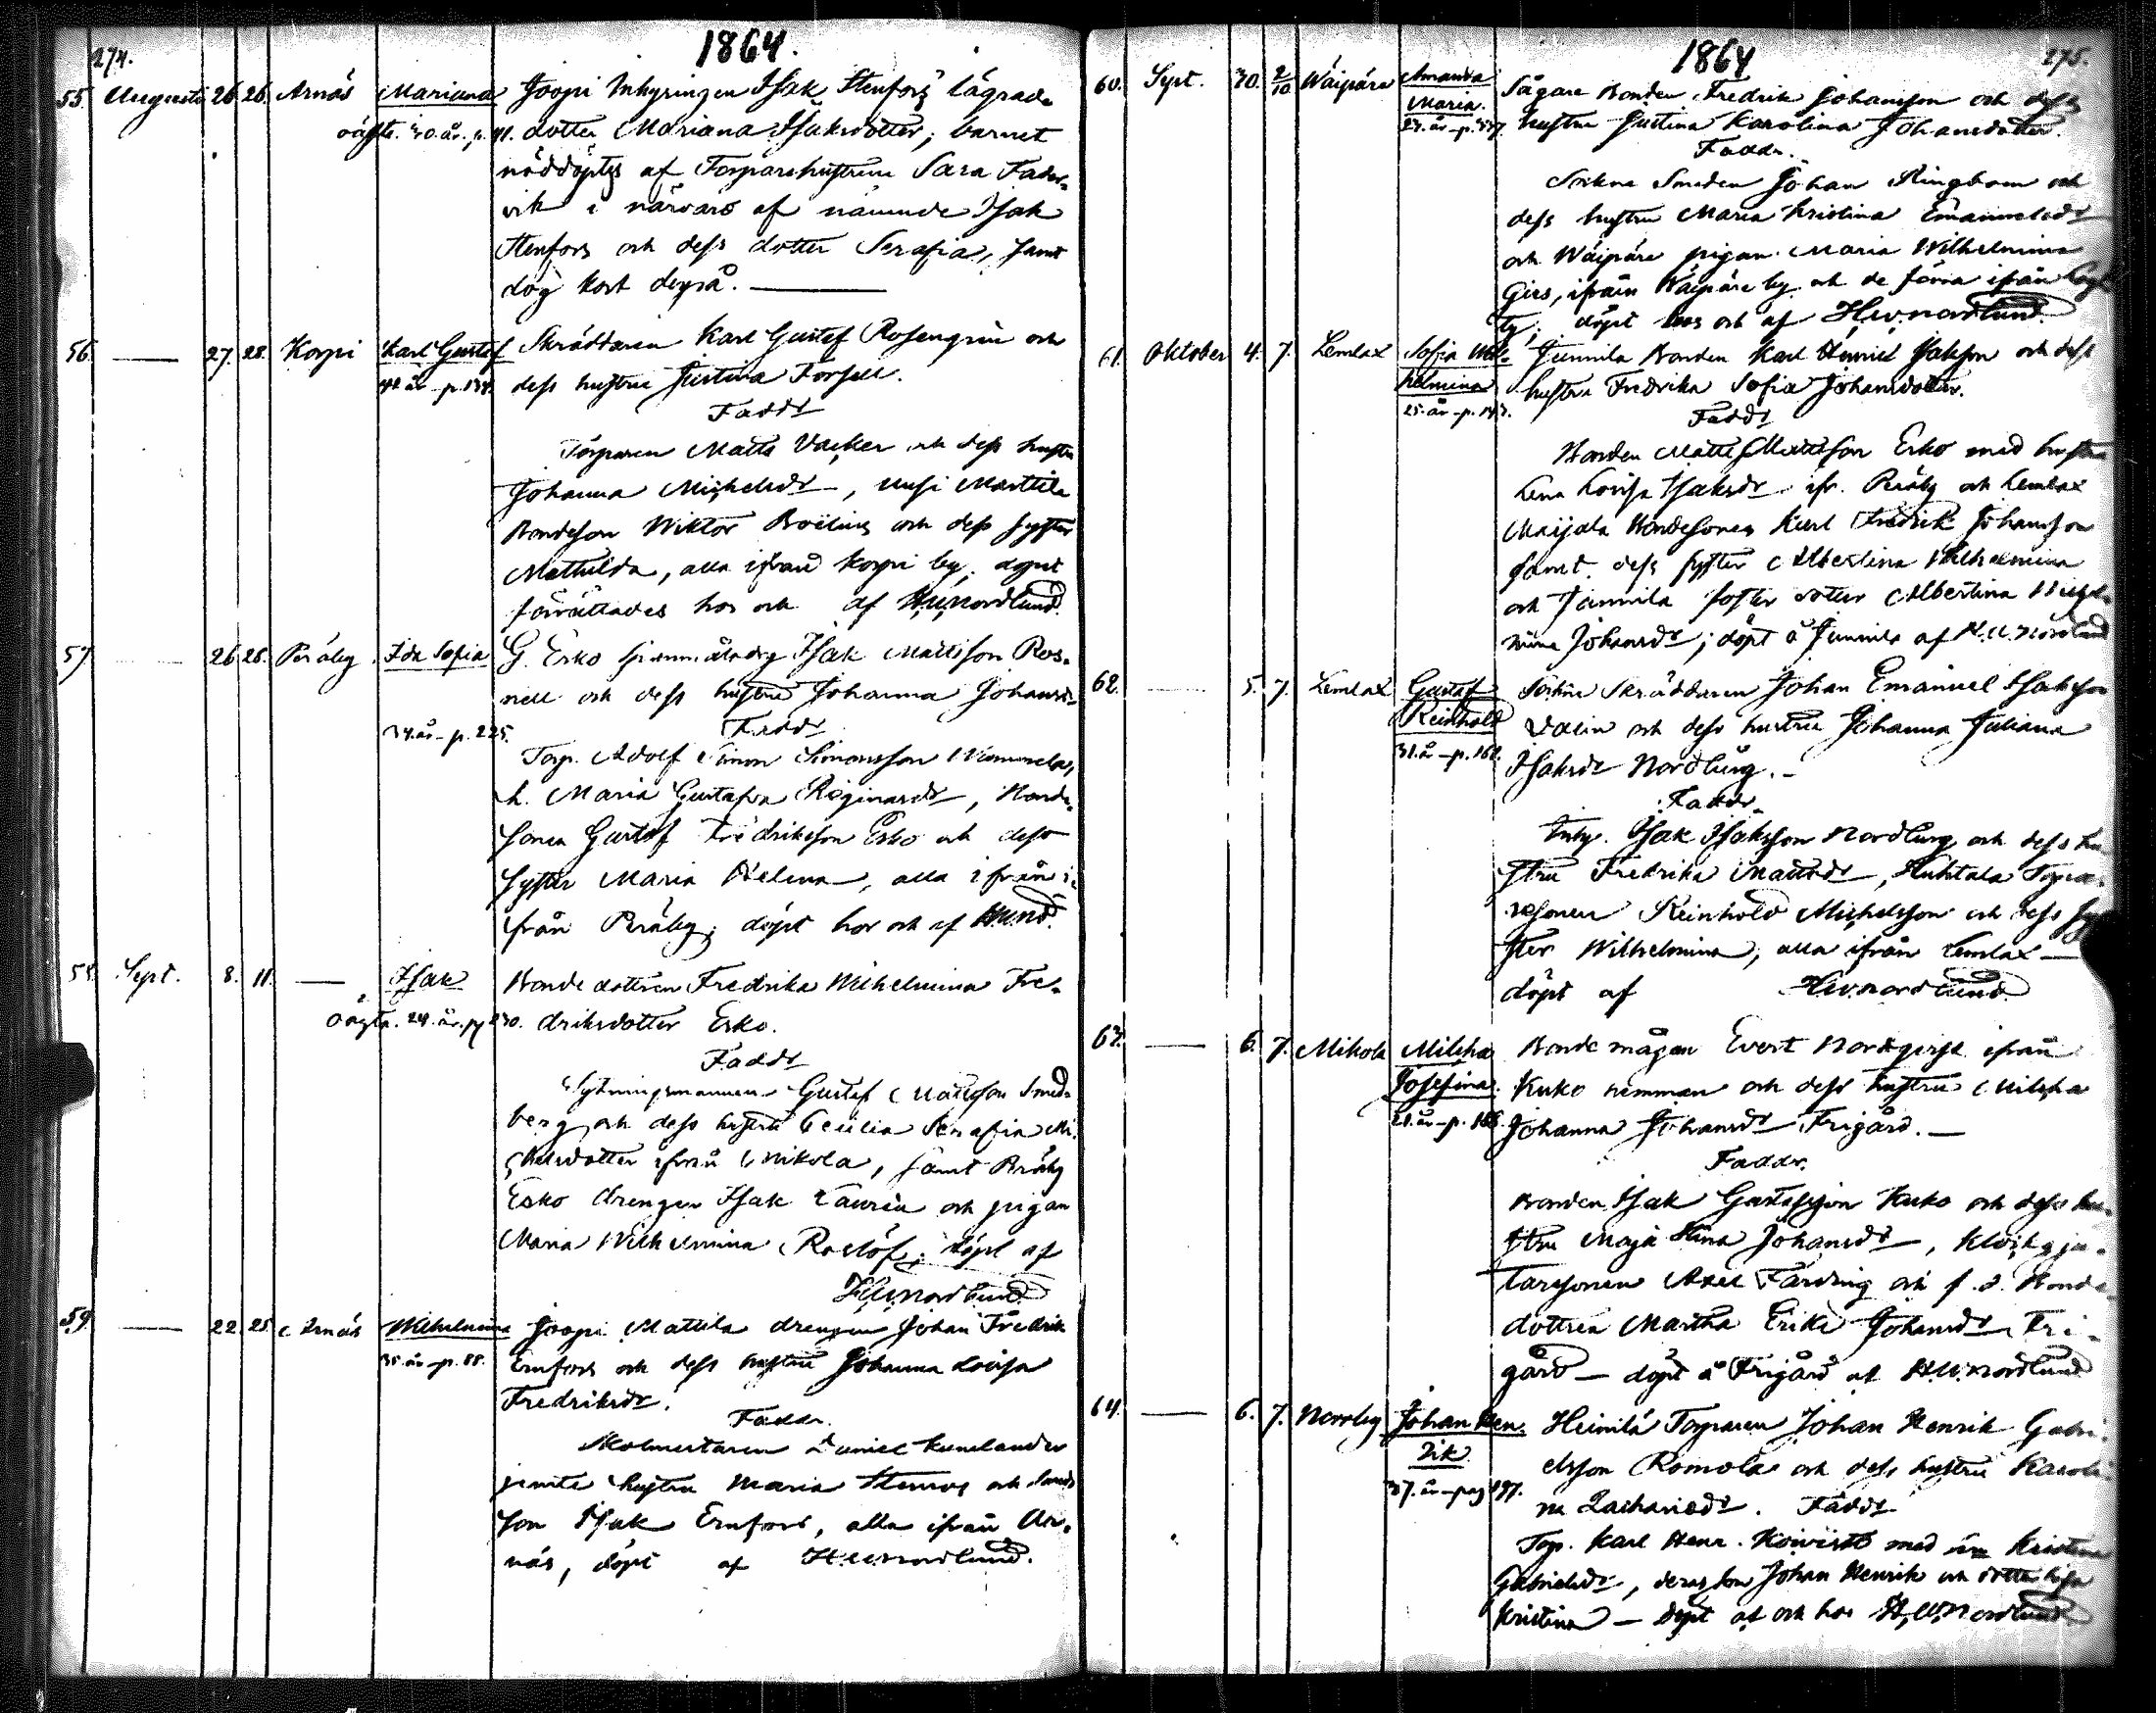 274.
1864.
55. Augusti 26. 26. Arnäs Mariana Joopi Inhysingen Isak Stenfors' lägrade
oägta. 30. år. p. 91. dotter Mariana Isaksdotter; barnet
nöddöptes af Torparehustrun Sara
vik i närvaro af nämnde Isak
Stenfors och dess dotter Serafia, samt
dog kort derpå.
56. — 27. 28. Korpi Karl Gustaf Skräddaren Karl Gustaf Rosengrén och
42 år - p. 134. dess hustru Justina Forsell.
Faddr
Torparen Matts Vacker och dess hustru
Johanna Michelsdr, Uusi Marttila
Bondeson Wiktor Boëlius och dess syster
Mathilda, alla ifrån Korpi by. döpt
förrättades hos och af H.W.Nordlund.
57 — 26. 28. Peräby Ida Sofia G. Esko Isak Mattsson Ros-
nell och dess hustru Johanna Johansdr
34. år - p. 225. Faddr
Torp. Adolf Simon Simonsson
h. Maria Gustafva Reginasdr, Bonde-
sonen Gustaf Fredriksson Esko och dess
syster Maria Helena, alla ifrån i-
från Peräby; döpt hos och af H.W.Nd.
58. Sept. 8. 11. — Isak Bondedottren Fredrika Wilhelmina Fre-
oägta. 24. år. pg 230. driksdotter Esko.
Faddr
Sytningsmannen Gustaf Mattsson Smed-
berg och dess hustru Cecilia Serafia Mi-
chelsdotter ifrån Mikola, samt Peräby
Esko drengen Isak Laurén och pigan
Maria Wilhelmina Roslöf; döpt af
H.W.Nordlund
59. — 22. 25. Arnäs Wilhelmina Joopi Mattila drengen Johan Fredrik
35. år - p. 88. Ernfors och dess hustru Johanna Lovisa
Fredriksdr.
Faddr.
Skolmestaren Daniel Kumlander
jemte hustru Maria Stenros och
son Isak Ernfors, alla ifrån Ar-
näs, döpt af H.W.Nordlund.
275.
1864
60. Sept. 30. 2/10 Wäipäre Amanda Sågare Bonden Fredrik Johansson och dess
Maria. hustru Justina Karolina Johansdotter.
Faddr.
Sockne Smeden Johan Ringbom och
dess hustru Maria Kristina Emanuelsdr
och Wäipäre pigan Maria Wilhelmina
Girs, ifrån Wäipäre by och de förra ifrån
by; döpt hos och af H.W.Nordlund.
61. Oktober 4. 7. Lemlax Sofia Wil- Junnila Bonden Karl Henrik Isaksson och dess
helmina hustru Fredrika Sofia Johansdotter.
25. år - p. 143. Faddr
Bonden Matts Mattsson Esko med hustru
Lena Lovisa Isaksdr ifr. Peräby och Lemlax
Maijala Bondesonen Karl Fredrik Johansson
samt dess syster Albertina Wilhelmina
och Junnila foster dotter Albertina Wilhel-
mina Johansdr; döpt å Junnila af H.W.Nordlund
62. — 5. 7. Lemlax Gustaf Sockne Skräddaren Johan Emanuel Isaksson
Reinhold Dalin och dess hustru Johanna Juliana
31. år - p. 162. Isaksdr Nordberg.
Faddr
Inhy. Isak Isaksson Nordberg och dess hu-
stru Fredrika Mattsdr, Huhtala Torpa-
resonen Reinhold Michelsson och dess sy-
ster Wilhelmina; alla ifrån Lemlax
döpt af H.W.Nordlund
63. — 6. 7. Mikola Milcha Bonde mågen Evert Nordqvist ifrån
Josefina. Kuko hemman och dess hustru Milcha
21. år - p. 186. Johanna Johansdr Frigård.
Faddr.
Bonden Isak Gustafsson Kuko och dess hu-
stru Maja Stina Johansdr, Klockgju-
taresonen Axel Färding och f. d. Bonde-
dottren Martha Erika Johansdr Fri-
gård — döpt å Frigård af H.W.Nordlund
64. — 6. 7. Norrby Johan Hen- Heinilä Torparen Johan Henrik Gabri-
rik elsson Romola och dess hustru Karoli-
37. år - pag 197. na Zachariedr. Faddr
Torp. Karl Henr. Koivisto med Kristina
Gabrielsdr, deras son Johan Henrik och dotter
Kristina — döpt af och hos H.W.Nordlund